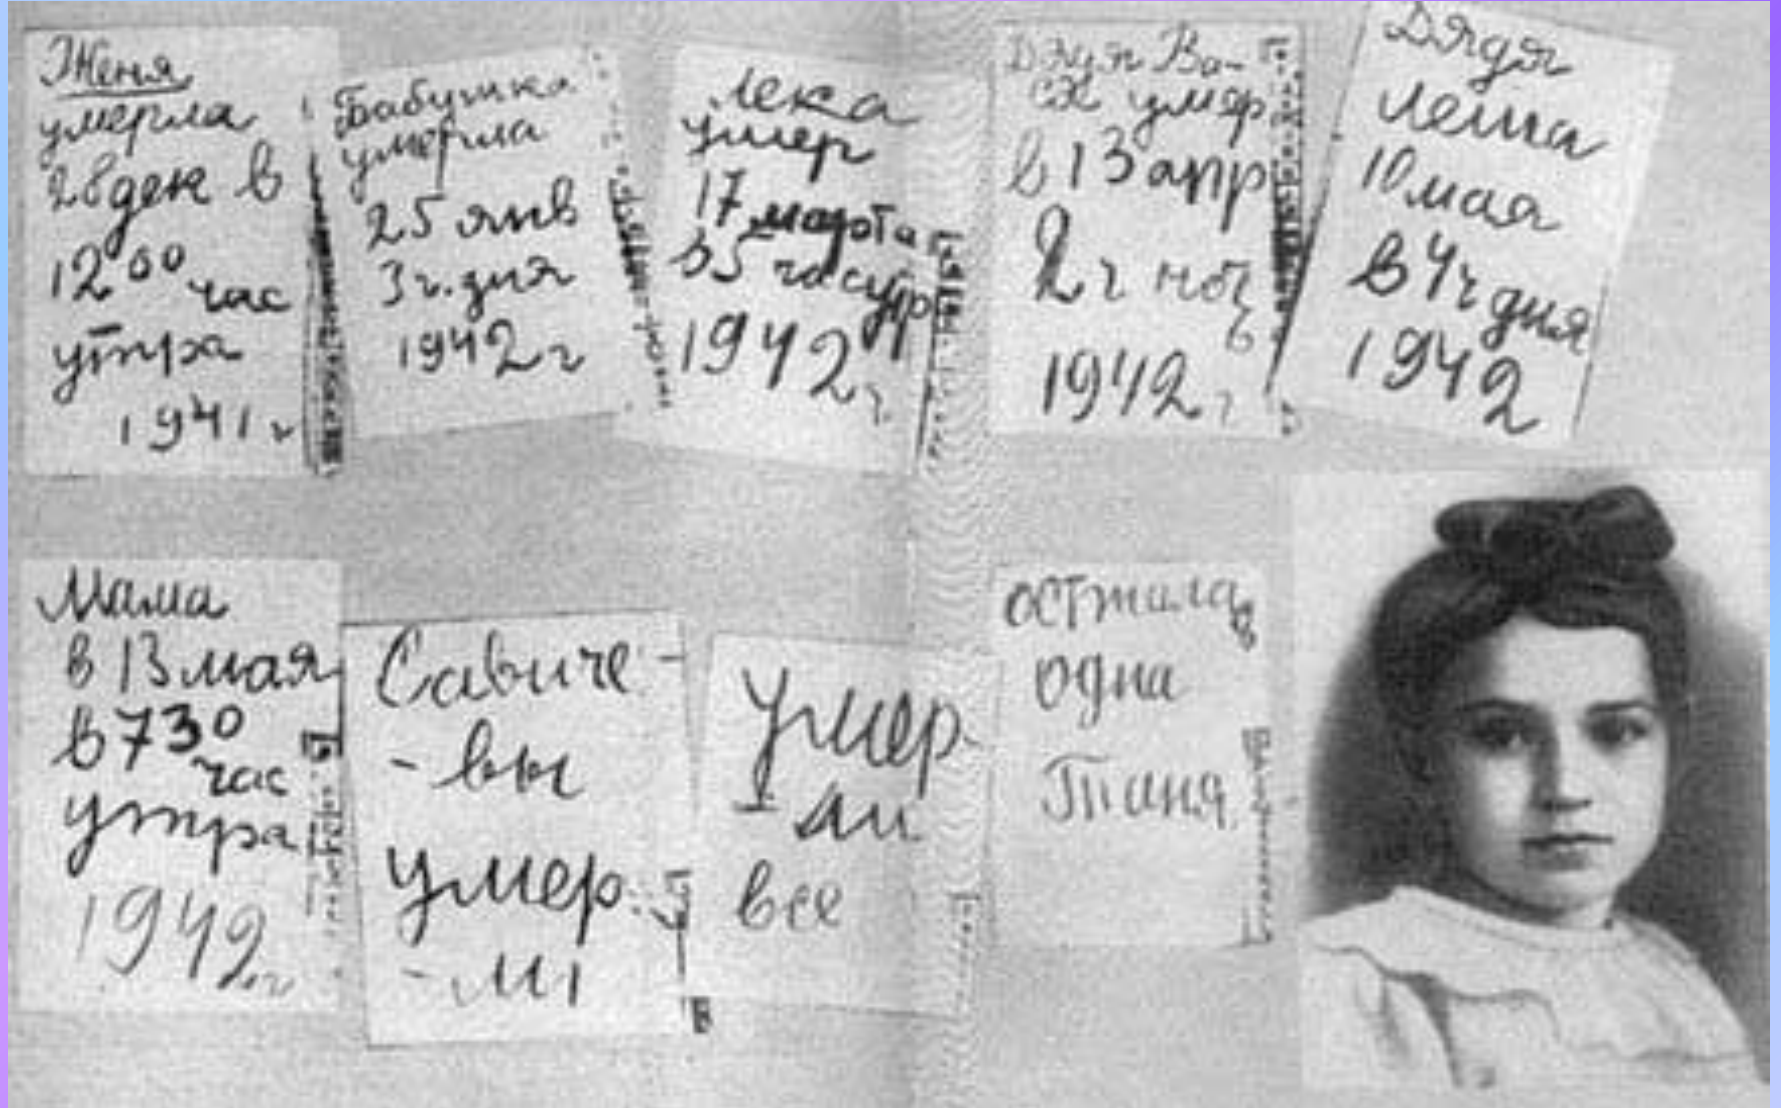 Женя
умерла
28 дек в
12 00 час
утра
1941 г
Бабушка
умерла
25 янв
3 ч. дня
1942 г
Лека
умер
17 марта
в 5 час утр
1942 г
Дядя Ва-
ся умер
в 13 апр
2 ч ноч
ь
1942 г
Дядя
Леша
10 мая
в 4 ч дня
1942
Мама
в 13 мая
в 7 30
час
утра
1942 г
Савиче-
-вы
умер
-ли
Умер
-ли
все
Осталась
одна
Таня